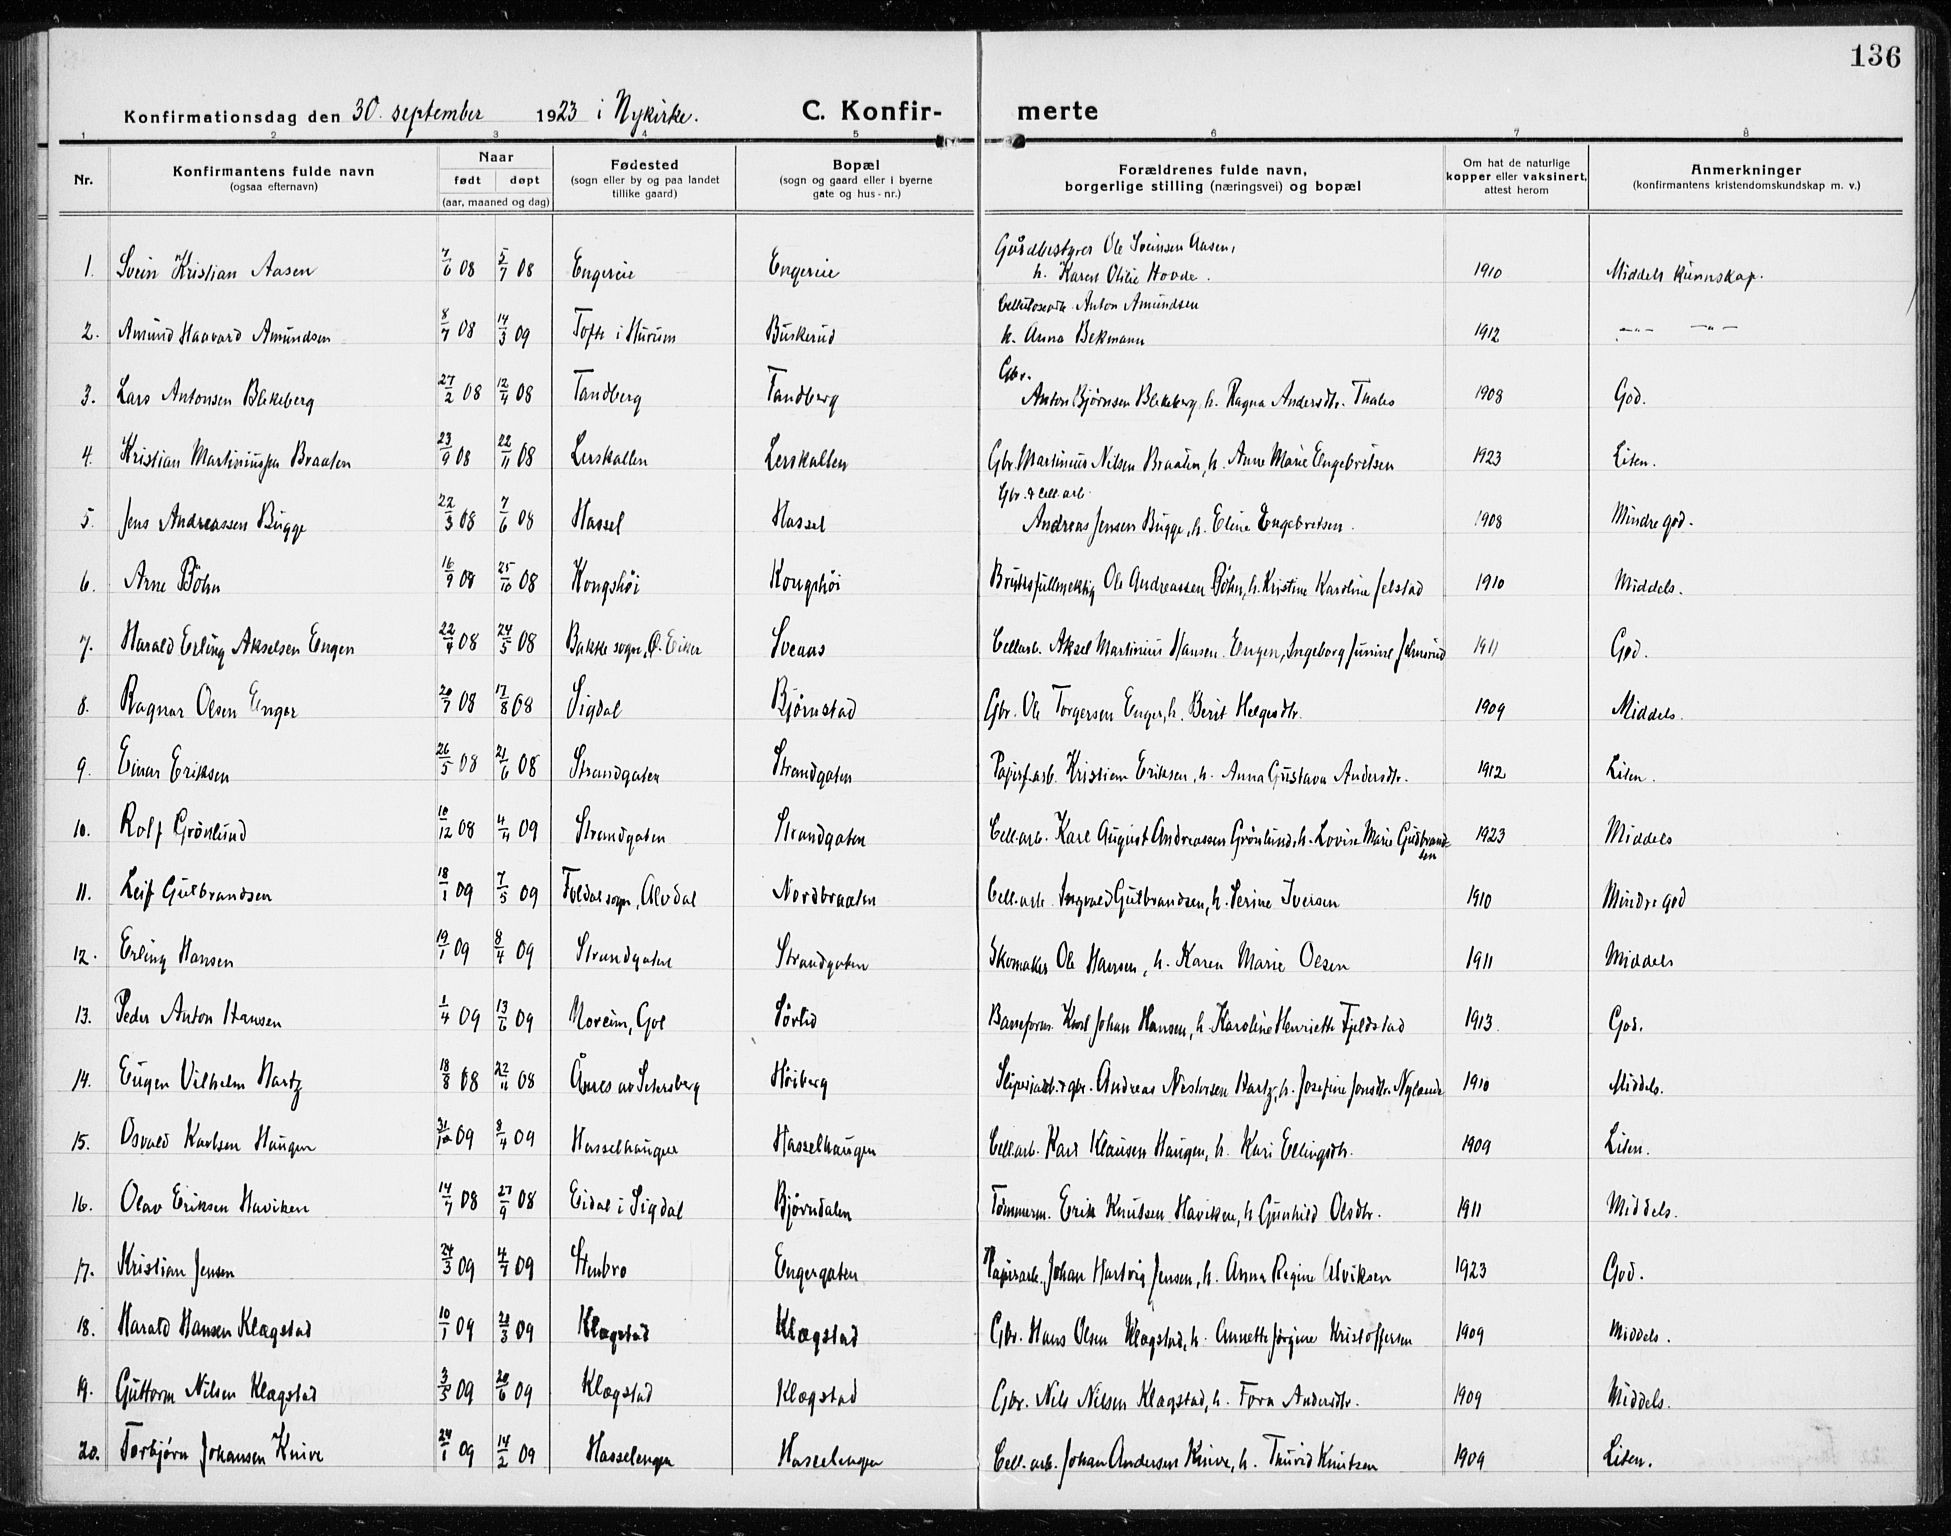 136
Konfirmationsdag den 30. september 1923 i Nykirke. C. Konfir- merte
1 2 3 4 5 6 7 8
Nr. Konfirmantens fulde navn (ogsaa efternavn) Naar født døpt (aar, maaned og dag) Fødested (sogn eller by og paa landet tillike gaard) Bopæl (sogn og gaard eller i byerne gate og hus-nr.) Forældrenes fulde navn, borgerlige stilling (næringsvei) og bopæl Om hat de naturlige kopper eller vaksinert, attest herom Anmerkninger (konfirmantens kristendomskundskap m. v.)
1. Svein Kristian Aasen 7/6 08 5/7 08 Engereie Engereie Gårdbestyrer Ole Sveinsen Aasen, h. Karen Otilie Hovde. 1910 Middels kunnskap.
2. Amund Haavard Amundsen 8/7 08 14/3 09 Tofte i Hurum Buskerud Cellulosearb. Anton Amundsen h. Anna Bekmann 1912 -"- -"-
3. Lars Antonsen Blekeberg 27/2 08 12/4 08 Tandberg Tandberg Gbr. Anton Bjørnsen Blekeberg, h. Ragna Andersdtr. Thales 1908 God.
4. Kristian Martiniussen Braaten 23/9 08 22/11 08 Lerskallen Lerskallen Gbr. Martinius Nilsen Braaten, h. Anne Marie Engebretsen 1923 Liten.
5. Jens Andreassen Bugge 22/3 08 7/6 08 Hassel Hassel Gbr. & cell.arb. Andreas Jensen Bugge, h. Eline Engebretsen. 1908 Mindre god.
6. Arne Böhn 16/9 08 25/10 08 Kongshöi Kongshöi Ole Andreassen Böhn, h. Kristine Karoline Jelstad 1910 Middels.
7. Harald Erling Akselsen Engen 22/4 08 24/5 08 Bakke sogn, Ø. Eiker Sveaas Cellarb. Aksel Martinius Hansen Engen, Ingeborg 1911 God.
8. Ragnar Olsen Enger 20/7 08 17/8 08 Sigdal Bjørnstad Gbr. Ole Torgersen Enger, h. Berit Helgesdtr. 1909 Middels.
9. Einar Eriksen 26/5 08 21/6 08 Strandgaten Strandgaten Papirf.arb. Kristian Eriksen, h. Anna Gustava Andersdtr. 1912 Liten.
10. Rolf Grönlund 10/12 08 4/4 09 Strandgaten Strandgaten Cell.arb. Karl August Andreassen Grönlund, h. Lovise Marie Gudbrandsen 1923 Middels
11. Leif Gulbrandsen 18/1 09 7/5 09 Foldal sogn, Alvdal Nordbraaten Cell.arb. Ingvald Gulbrandsen, h. Serine Iversen 1910 Mindre god
12. Erling Hansen 19/1 09 8/4 09 Strandgaten Strandgaten Skomaker Ole Hansen, h. Karen Marie Olsen 1911 Middels
13. Peder Anton Hansen 1/4 09 13/6 09 Noreim, Gol Sörlid Baneform. Karl Johan Hansen, h. Karoline Henriette Fjeldstad 1913 God.
14. Eugen Vilhelm Hartz 18/8 08 22/11 08 Åsnes av Setersberg Höiberg Sliperiarb. & gbr. Andreas Hartz, h. Josefine Jonsdtr. Nylænde 1910 Middels.
15. Osvald Karlsen Haugen 09 8/4 09 Hasselhaugen Hasselhaugen Cell.arb. Karl Klausen Haugen, h. Kari Ellingsdtr. 1909 Liten.
16. Olav Eriksen Haviken 14/7 08 27/9 08 Eidal i Sigdal Bjørndalen Tömmerm. Erik Knutsen Haviken, h. Gunhild Olsdtr. 1911 Middels.
17. Kristian Jensen 24/3 09 4/7 09 Stenbro Engergaten Papirarb. Johan Hartvig Jensen, h. Anna Regine Alviksen 1923 God.
18. Harald Hansen Klægstad 10/1 09 20/3 09 Klægstad Klægstad Gbr. Hans Olsen Klægstad, h. Annette Jørgine Kristoffersen 1909 Middels.
19. Guttorm Nilsen Klægstad 3/5 09 20/6 09 Klægstad Klægstad Gbr. Nils Nilsen Klægstad, h. Tora Andersdtr. 1909 Middels.
20. Torbjørn Johansen Knive 24/1 09 14/2 09 Hasselengen Hasselengen Cell.arb. Johan Andersen Knive, h. Thurid Knutsen 1909 Liten.